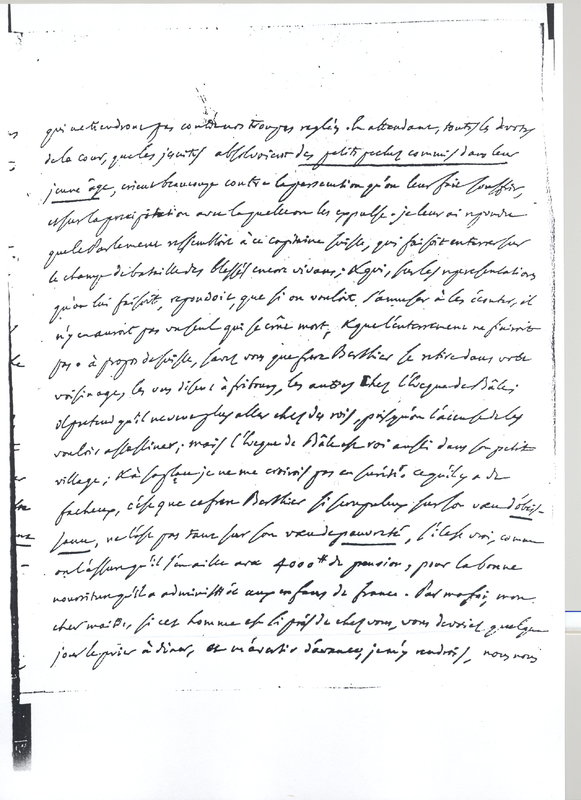 qui ne tiendront pas contre nos troupes reglées. En attendant, toutes les devotes
de la cour, que les jesuites absolvoient des petits pechez commis dans leur
jeune âge, crient beaucoup contre la persecution qu'on leur fait souffrir,
et sur la precipitation avec laquelle on les expulse. je leur ai repondu
que le Parlement ressembloit à ce capitaine suisse, qui faisoit enterrer sur
le champ de bataille des blessés encore vivans; & qui, sur les representations
qu'on lui faisoit, repondoit, que si on vouloit s'amuser à les écouter, il
n'y en auroit pas un seul qui se crût mort, & que l'enterrement ne finiroit
pas. à propos de suisse, savez vous que frere Berthier se retire dans votre
voisinage, les uns disent à fribourg, les autres chez l'Evêque de Bâle;
il pretend qu'il ne veut plus aller chez des rois, puisqu'on l'accuse de les
vouloir assassiner; mais l'Evêque de Bâle est roi aussi dans son petit
village; & à sa place je ne me croirois pas en sureté. ce qu'il y a de
facheux, c'est que ce frere Berthier si scrupuleux sur son vœu d'obéis-
sance, ne l'est pas tant sur son vœu de pauvreté, s'il est vrai, comme
on l'assure qu'il s'en aille avec 4000# de pension, pour la bonne
nourriture qu'il a administrée aux enfans de france. Par ma foi, mon
cher maitre, si cet homme est si près de chez vous, vous devriez quelque
jour le prier à diner, et m'avertir d'avance, je m'y rendrois, nous nous